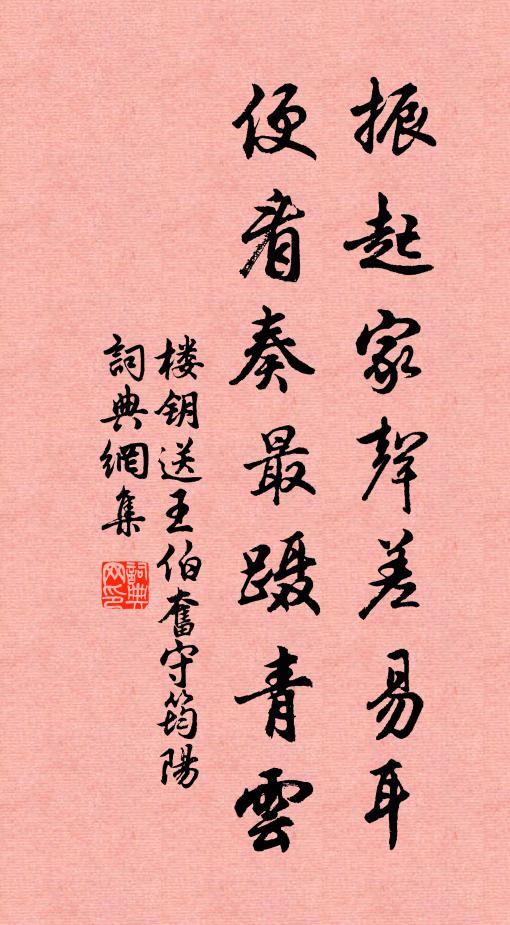 振起家聲差易耳
便看奏最蹑青雲
楼钥送王伯奮守筠陽
詞典網集
詞典
网印